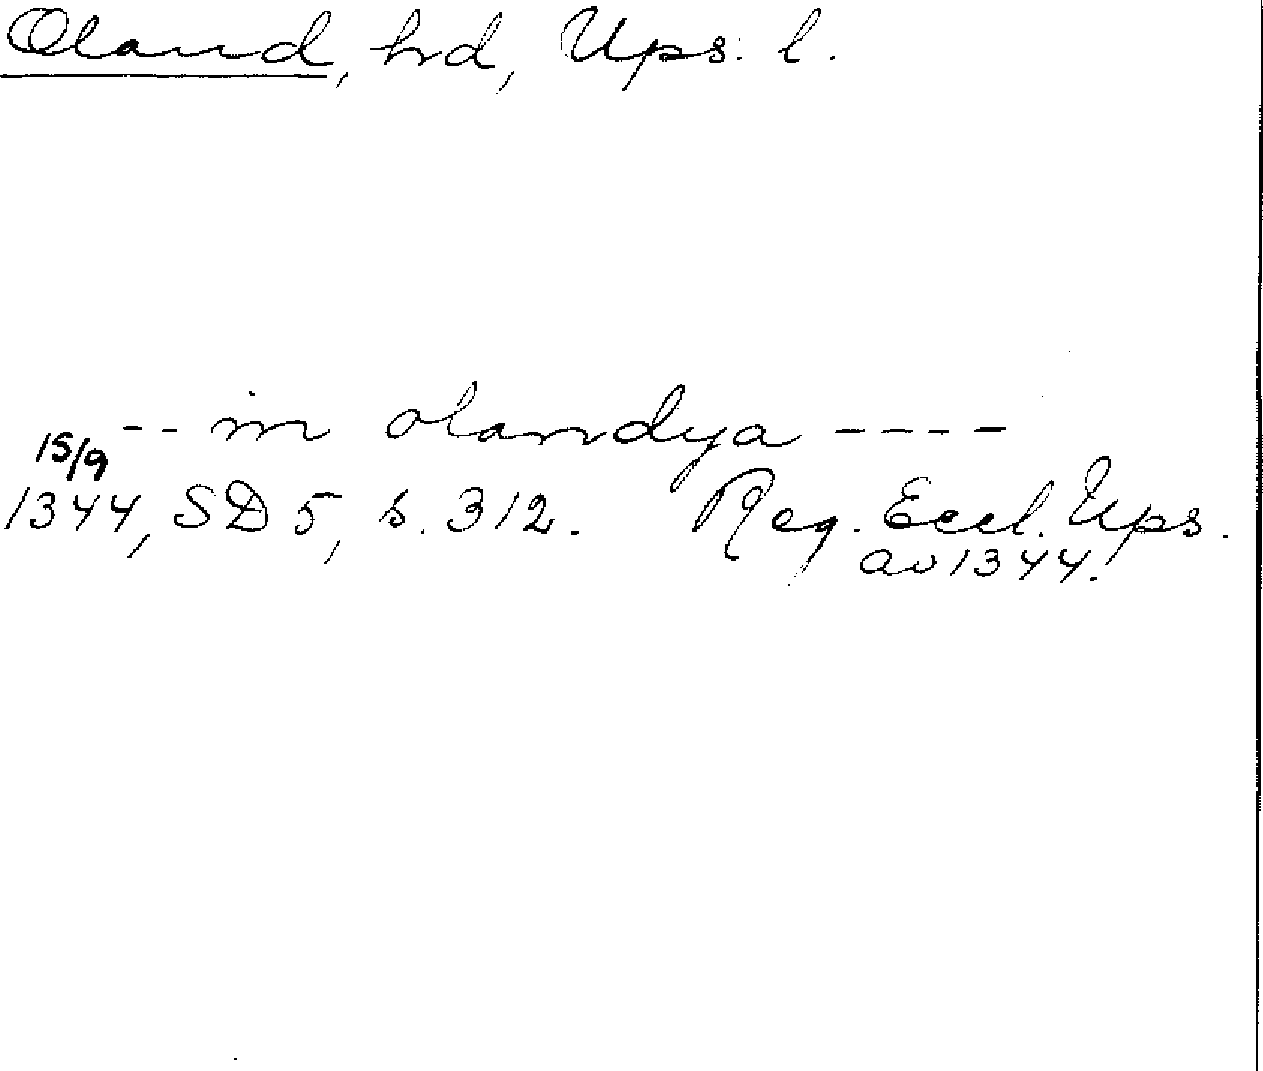 Oland, hd, Ups. l.
-- in olandya ----
15/9
1344, SD 5, s. 312. Reg. Eccl. Ups.
av 1344.